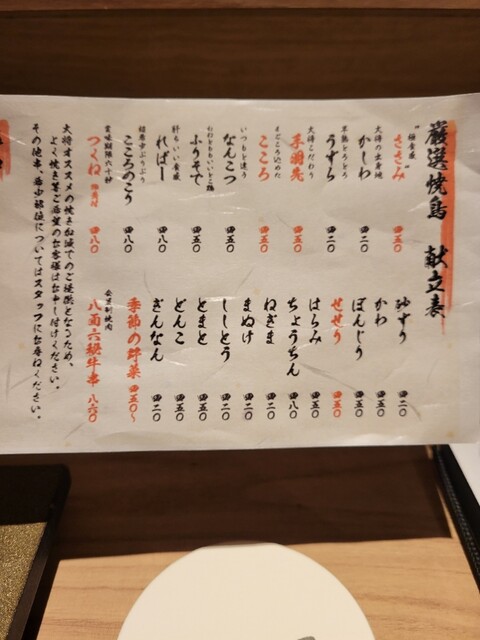 厳選焼鳥 献立表
"極食感"
ささみ 四五〇
大将の出身地
かしわ 四二〇
半熟とろとろ
うずら 四二〇
大将こだわり
手羽先 四五〇
まごころ込めた
こころ 四五〇
いつもと違う
なんこつ 四五〇
ふりそで 四五〇
肝もいい食感
ればー 四八〇
超希少ぷりぷり
こころのこり 四八〇
賞味期限六十秒
つくね 四八〇
砂ずり 四二〇
かわ 四二〇
ぼんじり 四二〇
せせり 四五〇
はらみ 四五〇
ちょうちん 四八〇
ねぎま 四二〇
まぬけ 四二〇
ししとう 四二〇
とまと 四五〇
どんこ 四五〇
ぎんなん 四二〇
季節の野菜 四五〇〜
八面六秘牛串 八六〇
大将オススメの焼き加減でのご提供となるため、
よく焼き等ご希望のお客様はお申し付けください。
その他串、希少部位についてはスタッフにお尋ねください。